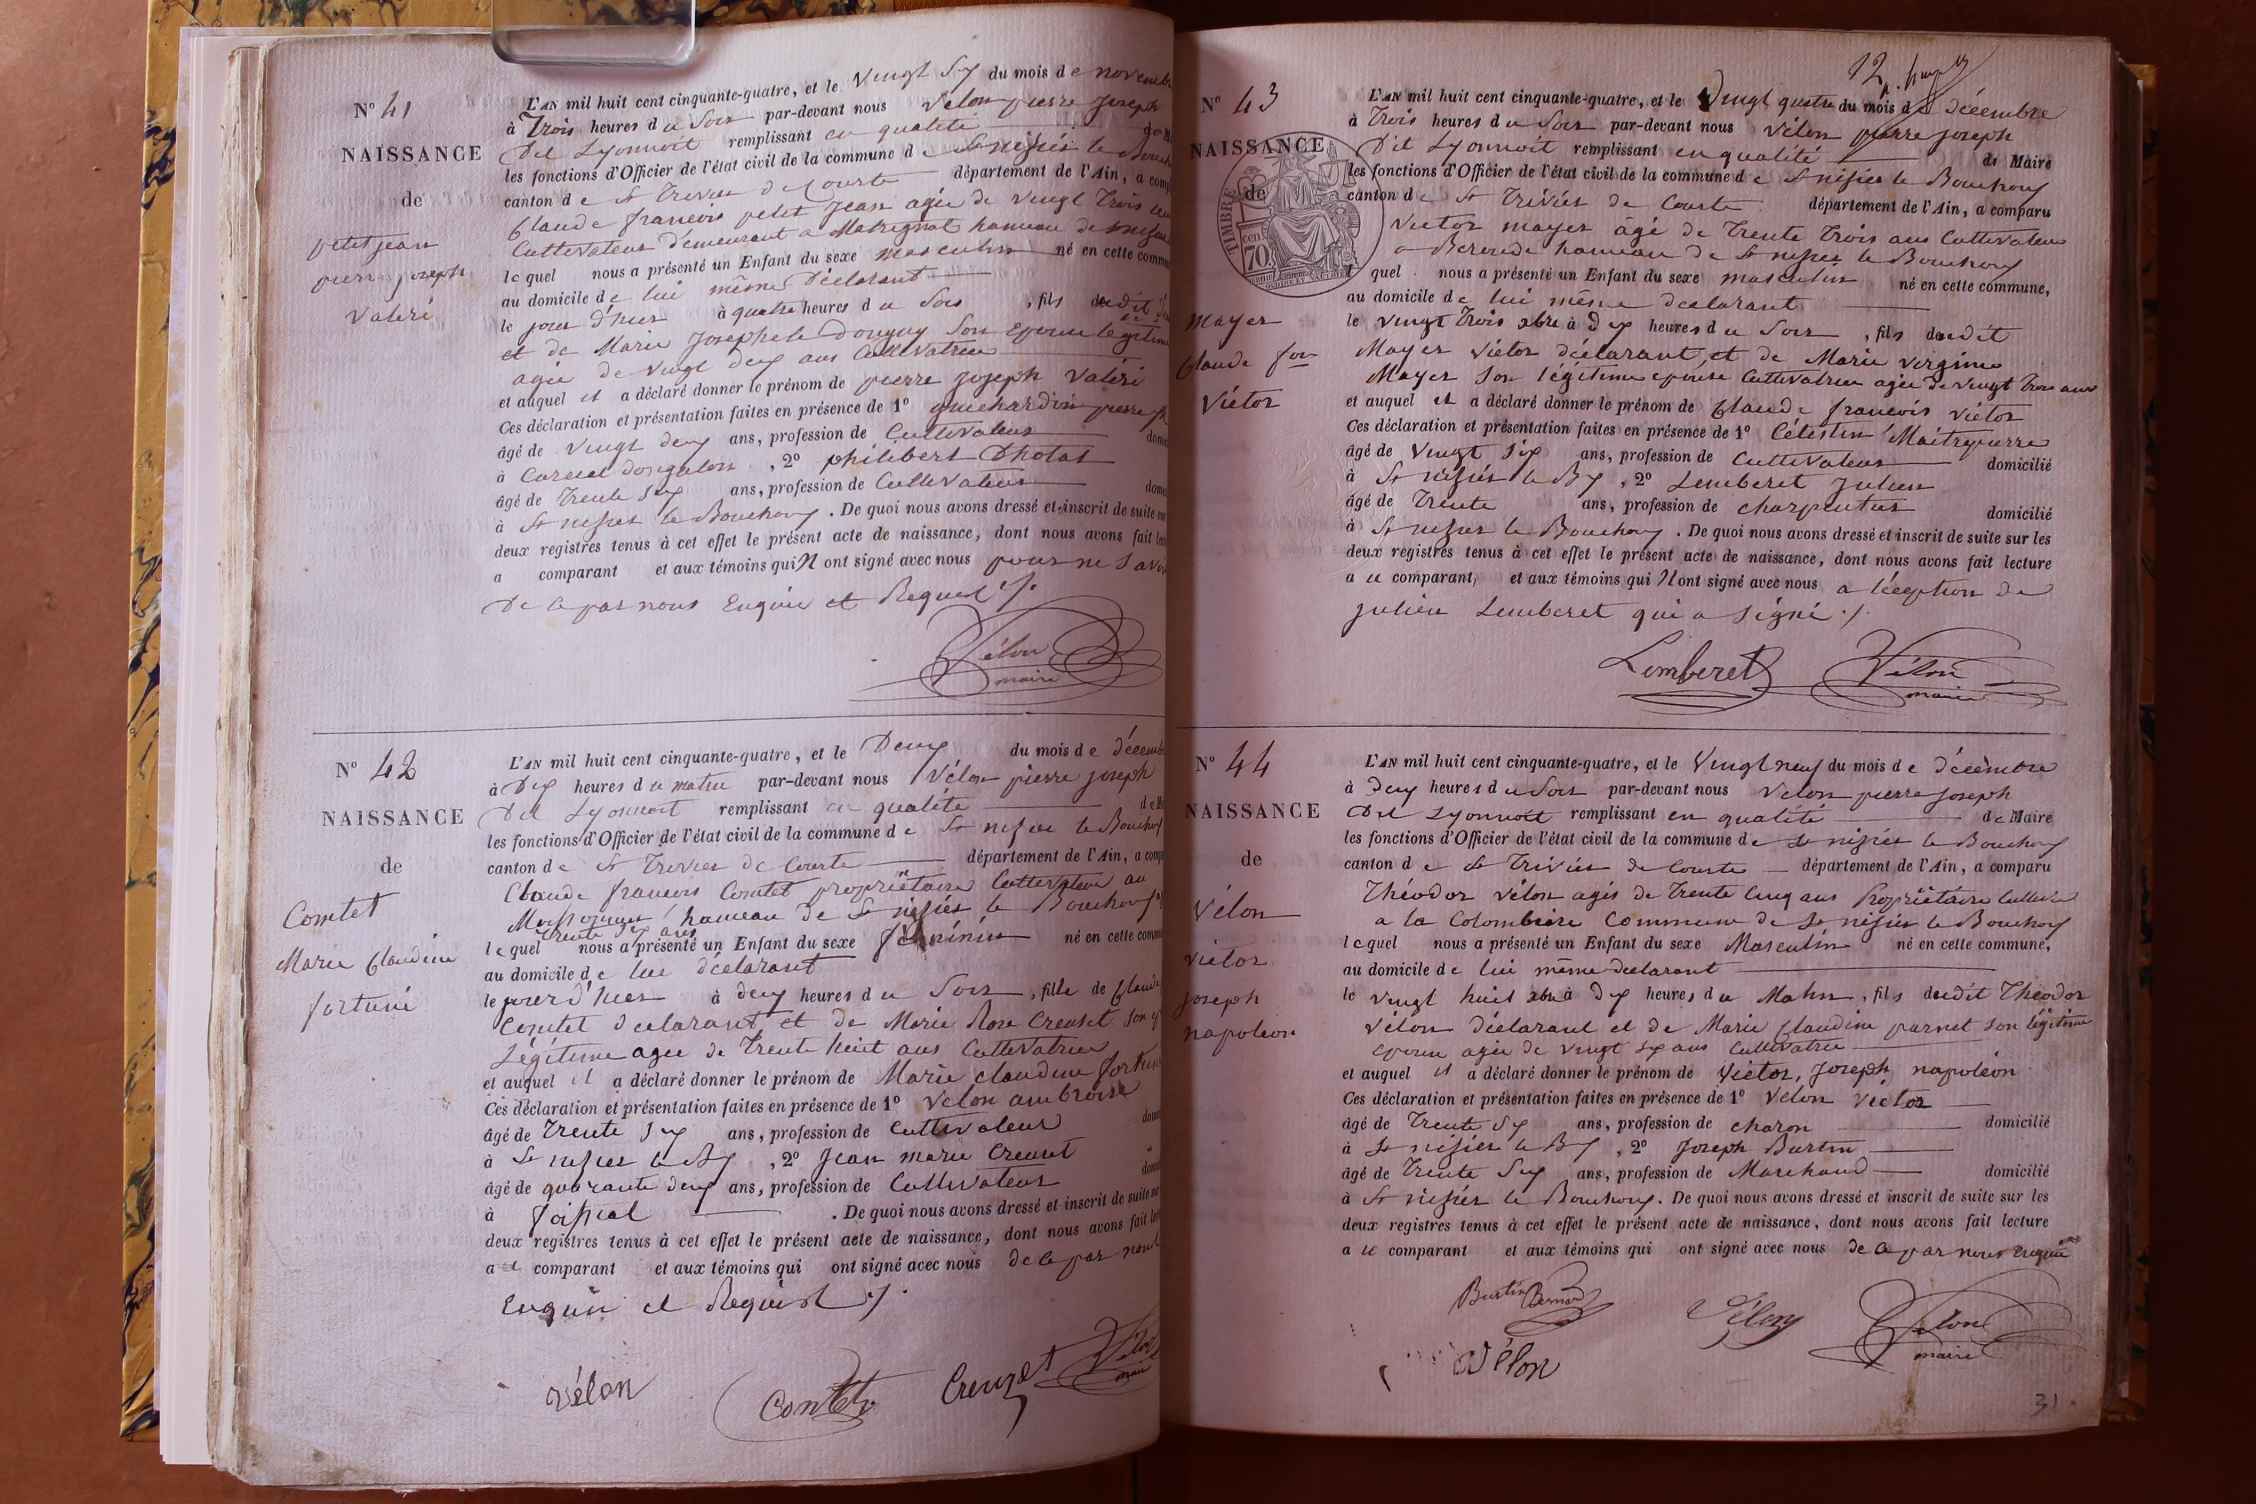 N° 41
NAISSANCE
de
petitjean
pierre joseph
Valeri
L'AN mil huit cent cinquante-quatre, et le Vingt Six du mois de novemb
à Trois heures du Soir par-devant nous Vélon pierre Joseph
Dit Lyonnoit remplissant en qualité
les fonctions d'Officier de l'état civil de la commune de St nisier le Bouch
canton de St Trivier de Courte département de l'Ain, a comp
Claude francois petit Jean agée de Vingt Trois
Cultivateur demeurant a hameau de
lequel nous a présenté un Enfant du sexe masculin né en cette comm
au domicile de lui même Déclarant
le jour d'hier à quatre heures du Soir, fils dudit
et de Marie Josephete Donguy Son Epouse légitime
agée de Vingt deux ans Cultivatrice
et auquel il a déclaré donner le prénom de pierre Joseph Valéri
Ces déclaration et présentation faites en présence de 1° guichardin pierre
âgé de Vingt deux ans, profession de Cultivateur
à , 2° philibert Chotat
âgé de Trente Six ans, profession de Cultivateur
à St nisier le Bouchoux. De quoi nous avons dressé et inscrit de suite sur
deux registres tenus à cet effet le présent acte de naissance, dont nous avons fait
a comparant et aux témoins qui N ont signé avec nous pour ne Savoir
De ce par nous Enquis et Requis ./.
Vélon
maire
N° 42
NAISSANCE
de
Comtet
Marie Claudine
fortuné
L'AN mil huit cent cinquante-quatre, et le Deux du mois de décemb
à Dix heures du matin par-devant nous Vélon pierre Joseph
Dit Lyonnoit remplissant en qualité de
les fonctions d'Officier de l'état civil de la commune de St nisier le Bouchoux
canton de St Trivier de Courte département de l'Ain, a comp
Claude francois Comtet propriétaire Cultivateur au
hameau de St nisier le Bouchoux
Trente Six ans
lequel nous a présenté un Enfant du sexe féminin né en cette comm
au domicile de lui déclarant
le jour d'hier à deux heures du Soir, fille de Claude
Comtet declarant et de Marie Rose Creuset Son
Légitime agee de Trente huit ans Cultivatrice
et auquel il a déclaré donner le prénom de Marie Claudine fortuné
Ces déclaration et présentation faites en présence de 1° Vélon ambroise
âgé de Trente Six ans, profession de Cultivateur
à St nisier le Bx, 2° Jean marie Creuset
âgé de quarante deux ans, profession de Cultivateur
à foissiat. De quoi nous avons dressé et inscrit de suite sur
deux registres tenus à cet effet le présent acte de naissance, dont nous avons fait
a comparant et aux témoins qui ont signé avec nous de ce par nous
Enquis et Requis ./.
Vélon
Comtet
Creuzet
Vélon
maire
12
N° 43
NAISSANCE
de
TIMBRE
cen
70
Mayer
Claude fois
Victor
L'AN mil huit cent cinquante-quatre, et le Vingt quatre du mois de décembre
à Trois heures du Soir par-devant nous Vélon pierre Joseph
Dit Lyonnoit remplissant en qualité de Maire
les fonctions d'Officier de l'état civil de la commune de St nisier le Bouchoux
canton de St Trivier de Courte département de l'Ain, a comparu
Victor mayer âgé de Trente Trois ans Cultivateur
a hameau de St nisier le Bouchoux
quel nous a présenté un Enfant du sexe masculin né en cette commune,
au domicile de lui même declarant
le vingt Trois xbre à Dix heures du Soir, fils dudit
Mayer Victor déclarant, et de Marie Virginie
Mayer Son légitime epouse Cultivatrice agée de vingt Trois ans
et auquel il a déclaré donner le prénom de Claude francois Victor
Ces déclaration et présentation faites en présence de 1° Célestin Maitrepierre
âgé de Vingt Six ans, profession de Cultivateur domicilié
à St nisier le Bx, 2° Lemberet Julien
âgé de Trente ans, profession de charpentier domicilié
à St nisier le Bouchoux. De quoi nous avons dressé et inscrit de suite sur les
deux registres tenus à cet effet le présent acte de naissance, dont nous avons fait lecture
a u comparant, et aux témoins qui N ont signé avec nous a léception de
Julien Lemberet qui a Signé ./.
Lemberet
Vélon
maire
N° 44
NAISSANCE
de
Vélon
Victor
Joseph
napoléon
L'AN mil huit cent cinquante-quatre, et le Vingt neuf du mois de décembre
à Deux heures du Soir par-devant nous Velon pierre Joseph
Dit Lyonnoit remplissant en qualité de Maire
les fonctions d'Officier de l'état civil de la commune de St nisier le Bouchoux
canton de St Trivier de Courte département de l'Ain, a comparu
Théodor Vélon agés de Trente Cinq ans Propriétaire Cultiva
a la Colombiere Commune de St nisier le Bouchoux
lequel nous a présenté un Enfant du sexe Masculin né en cette commune,
au domicile de lui même declarant
le vingt huit xbre à Dix heures du Matin, fils dudit Théodor
Vélon déclarant et de Marie Claudine parnet son légitime
epouse agée de vingt six ans Cultivatrice
et auquel il a déclaré donner le prénom de Victor, Joseph, napoléon
Ces déclaration et présentation faites en présence de 1° Vélon Victor
âgé de Trente Six ans, profession de charon domicilié
à St nisier le Bx, 2° Joseph Burtin
âgé de Trente Six ans, profession de Marchand domicilié
à St nisier le Bouchoux. De quoi nous avons dressé et inscrit de suite sur les
deux registres tenus à cet effet le présent acte de naissance, dont nous avons fait lecture
a u comparant et aux témoins qui ont signé avec nous de ce par nous enquis
Burtin Bernard
Vélon
Vélon
maire
Vélon
31